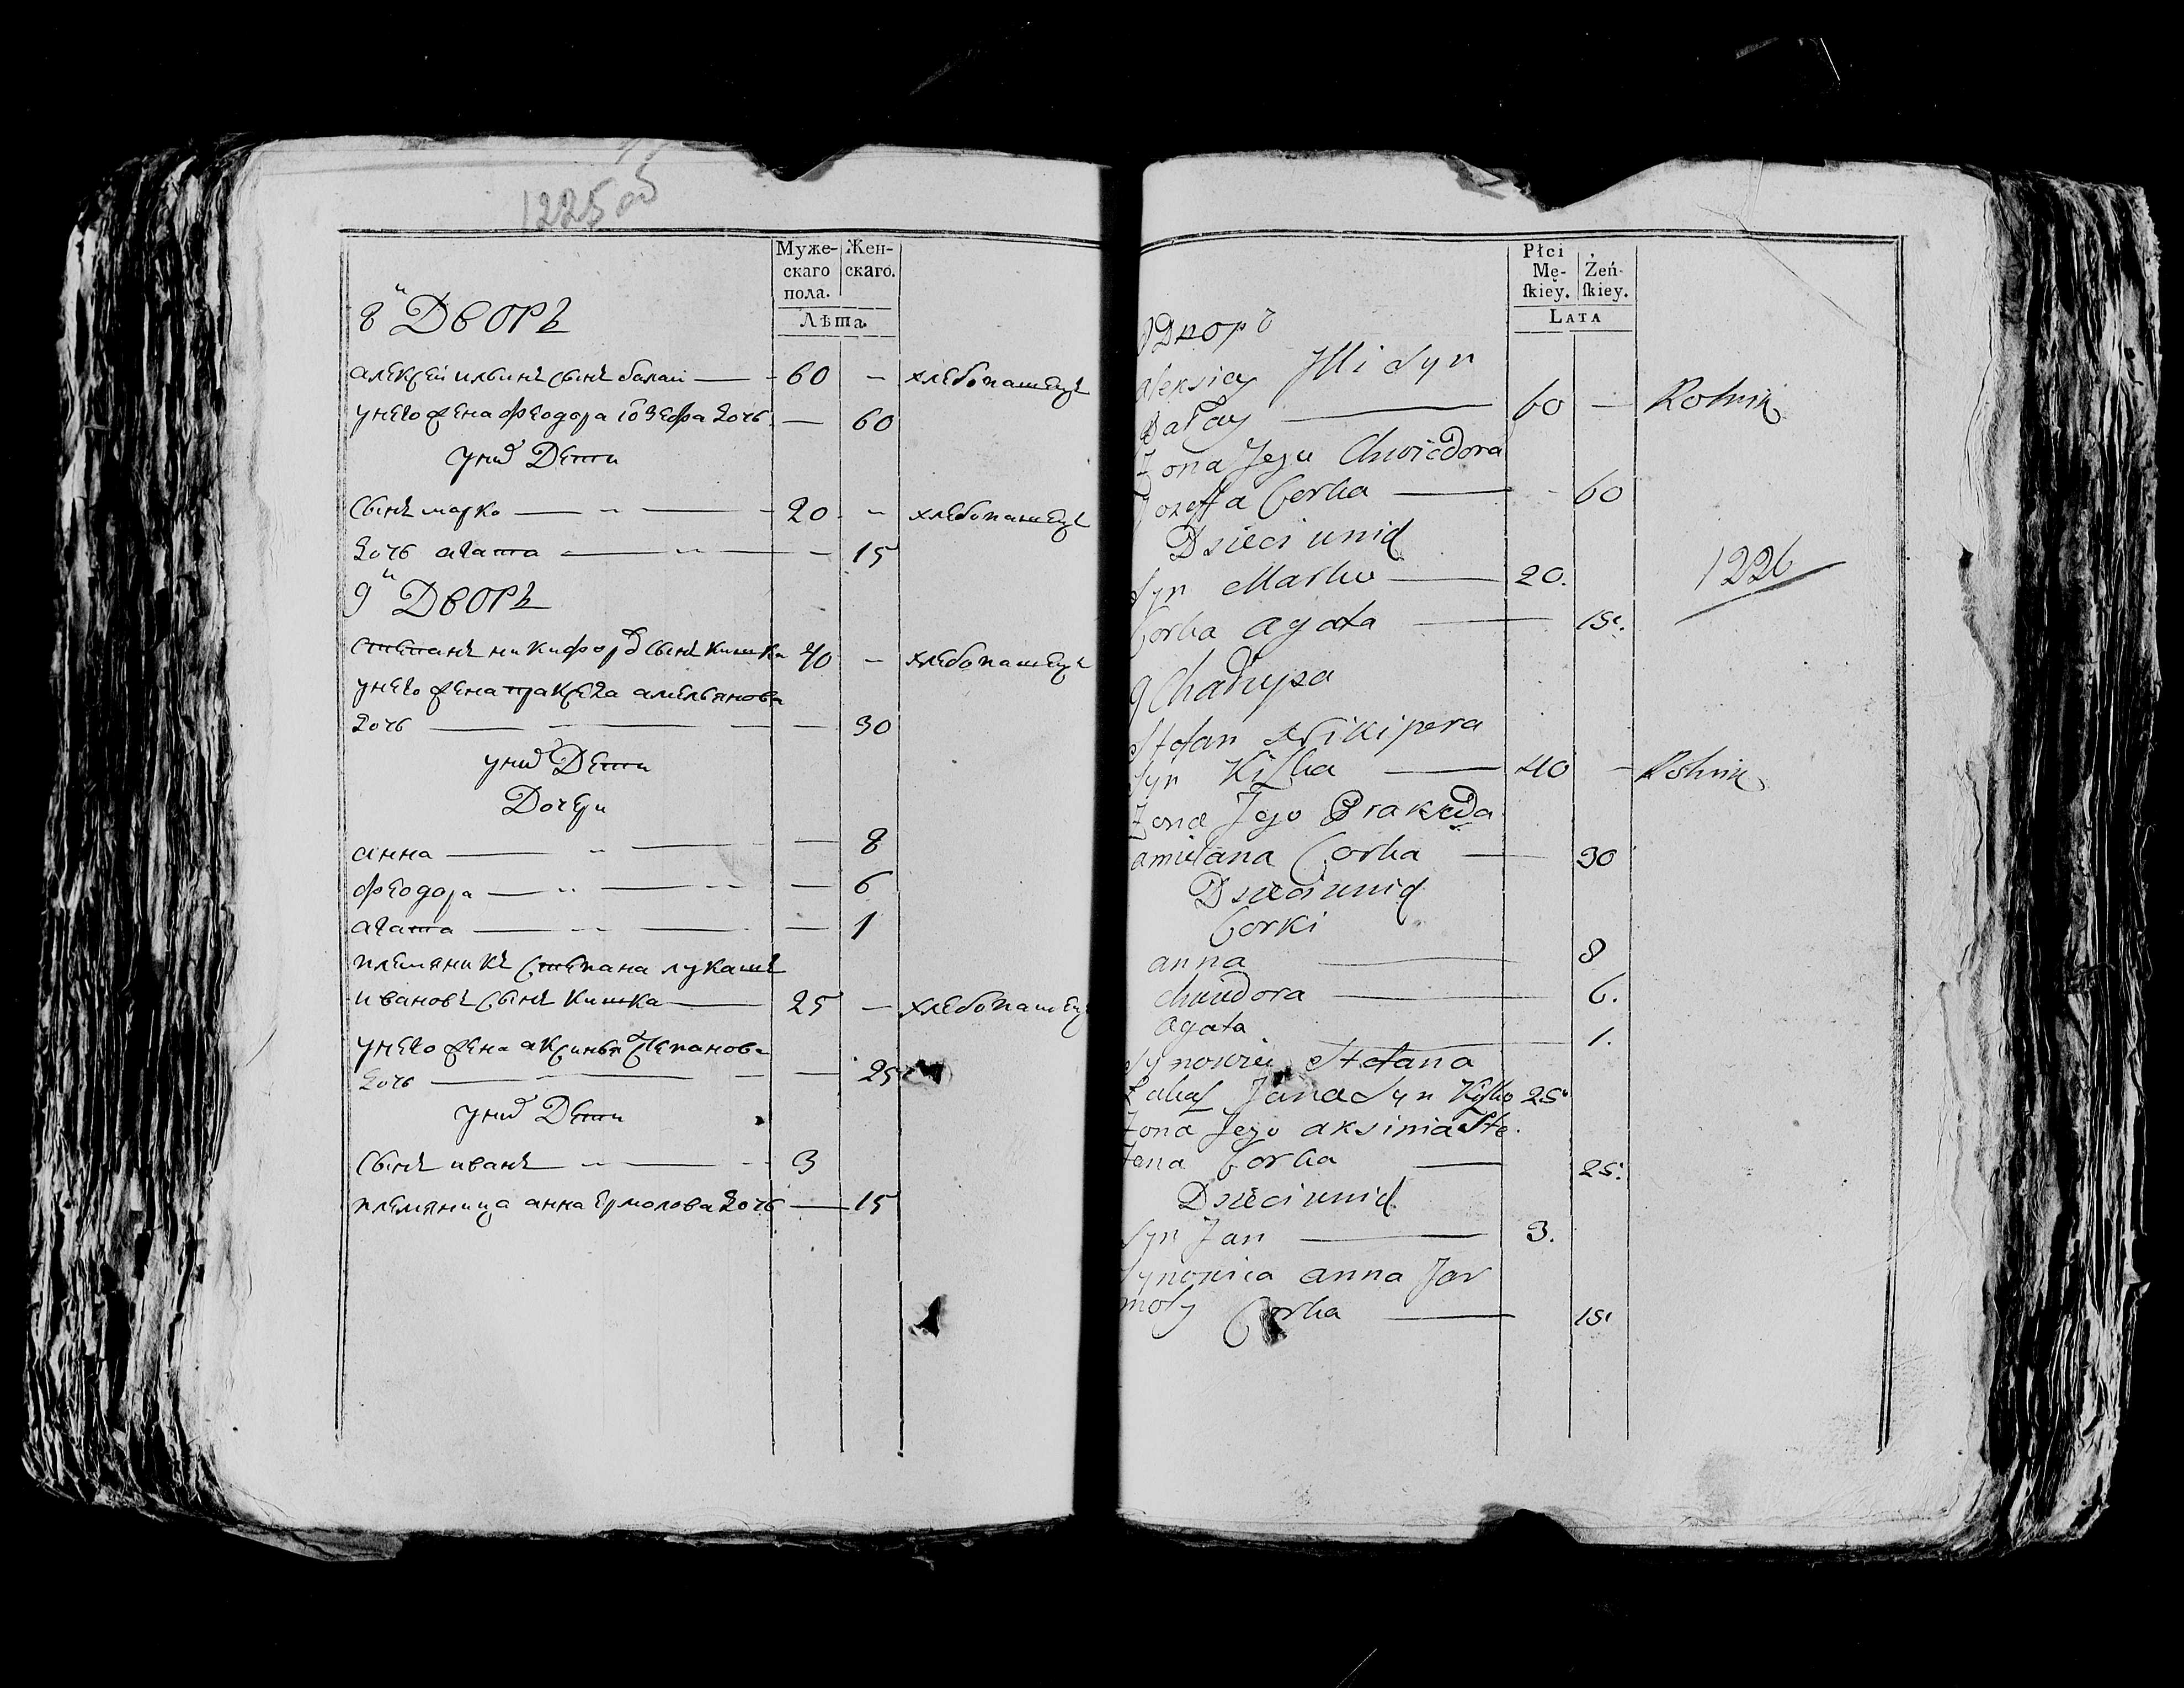 1225 об
Муже-
скаго
пола.
Жен-
скаго.
Лѣта.
8й Дворъ
алексей ильинъ сынъ балай — 60 - хлебопашецъ
унего жена феодора іозефа дочь — 60
унид Дети
сынъ марко — 20 - хлебопашецъ
дочь агата — 15
9й Дворъ
степанъ никифоровъ сынъ кишка 40 - хлебопашецъ
унего жена пракседа амельянова
дочь — 30
унид Дети
Дочери
анна — 8
феодора — 6
агата — 1
племяникъ степана лукашъ
ивановъ сынъ кишка — 25 — хлебопашецъ
унего жена аксинья степанова
дочь — 25
унид Дети
сынъ иванъ — 3
племяница анна ермолова дочь — 15
Płci
Mę-
ſkiey.
Żeń-
ſkiey.
LATA
8 Дворъ
Aleksiey Illi Syn
Bałay — 60 — Rolnik
Żona Jego Chwiedora
Jozeffa Corka — 60
Dzieci unich
Syn Marko — 20.
Corka agata — 15.
1226
9 Chałupa
Stefan Nikipera
Syn Kiſzka — 40 — Rolnik
Żona Jego Prakseda
amielana Corka — 30
Dzieci unich
Corki
anna — 8
chwiedora — 6.
agata — 1.
Synowiec Stefana
Łukaſz Jana Syn Kiſzka 25
Żona Jego aksinia Ste.
fana Corka — 25.
Dzieci unich
Syn Jan — 3.
Synowica anna Jar
moły Corka — 15.